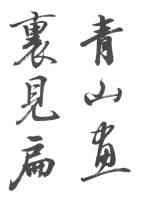 青山畫
裏見扁